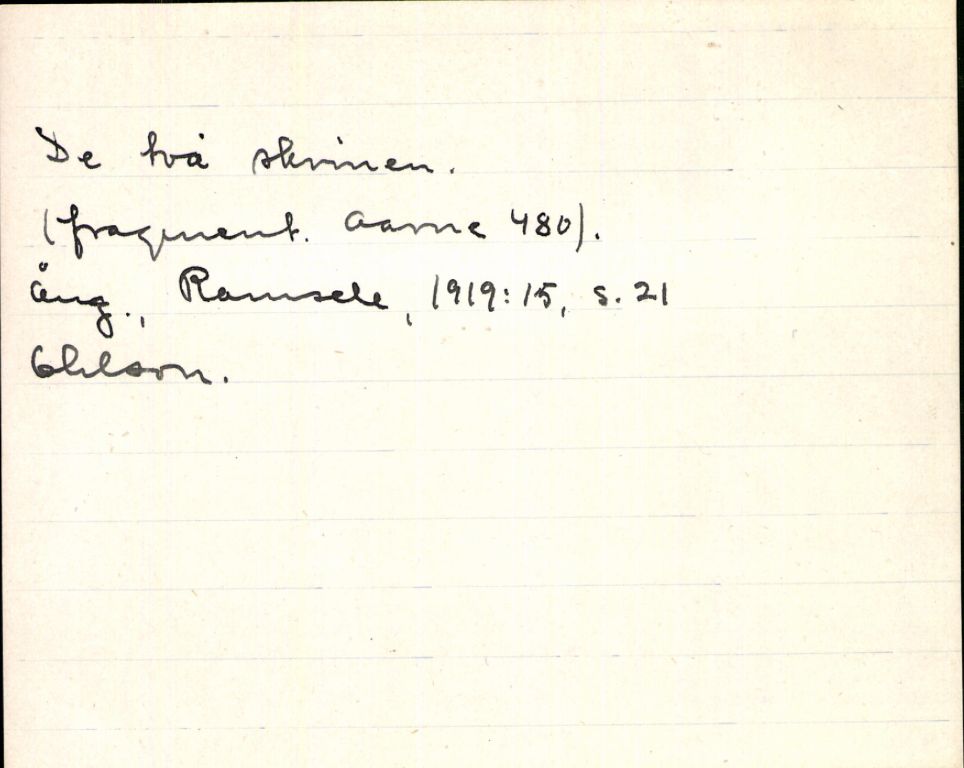 De två skrinen.
(fragment. Aarne 480).
Ång., Ramsele, 1919:15, s. 21
Ohlson.